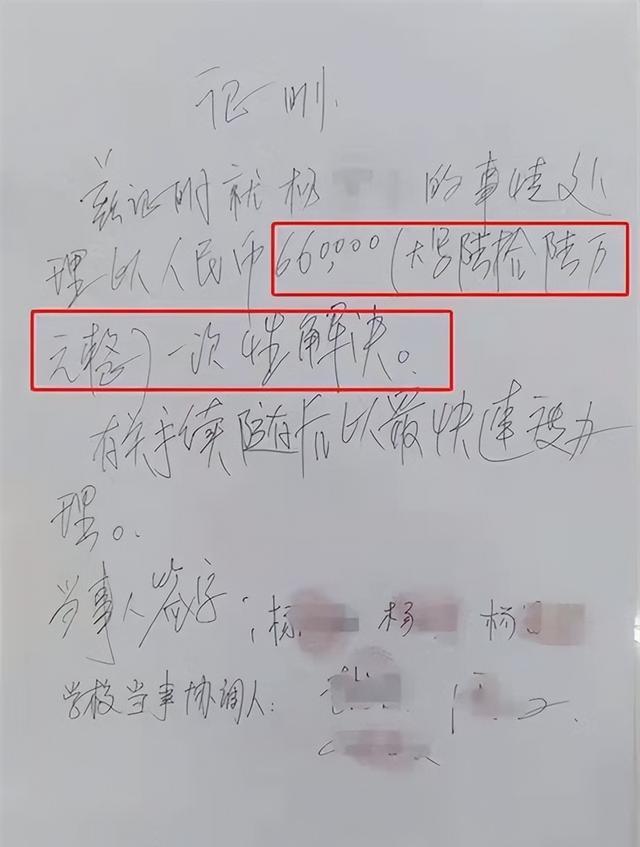 证明
兹证明就杨 的事情处
理以人民币660,000(大写陆拾陆万
元整)一次性解决。
有关手续随后以最快速度办
理。
当事人签字:杨 杨 杨
学校当事协调人: